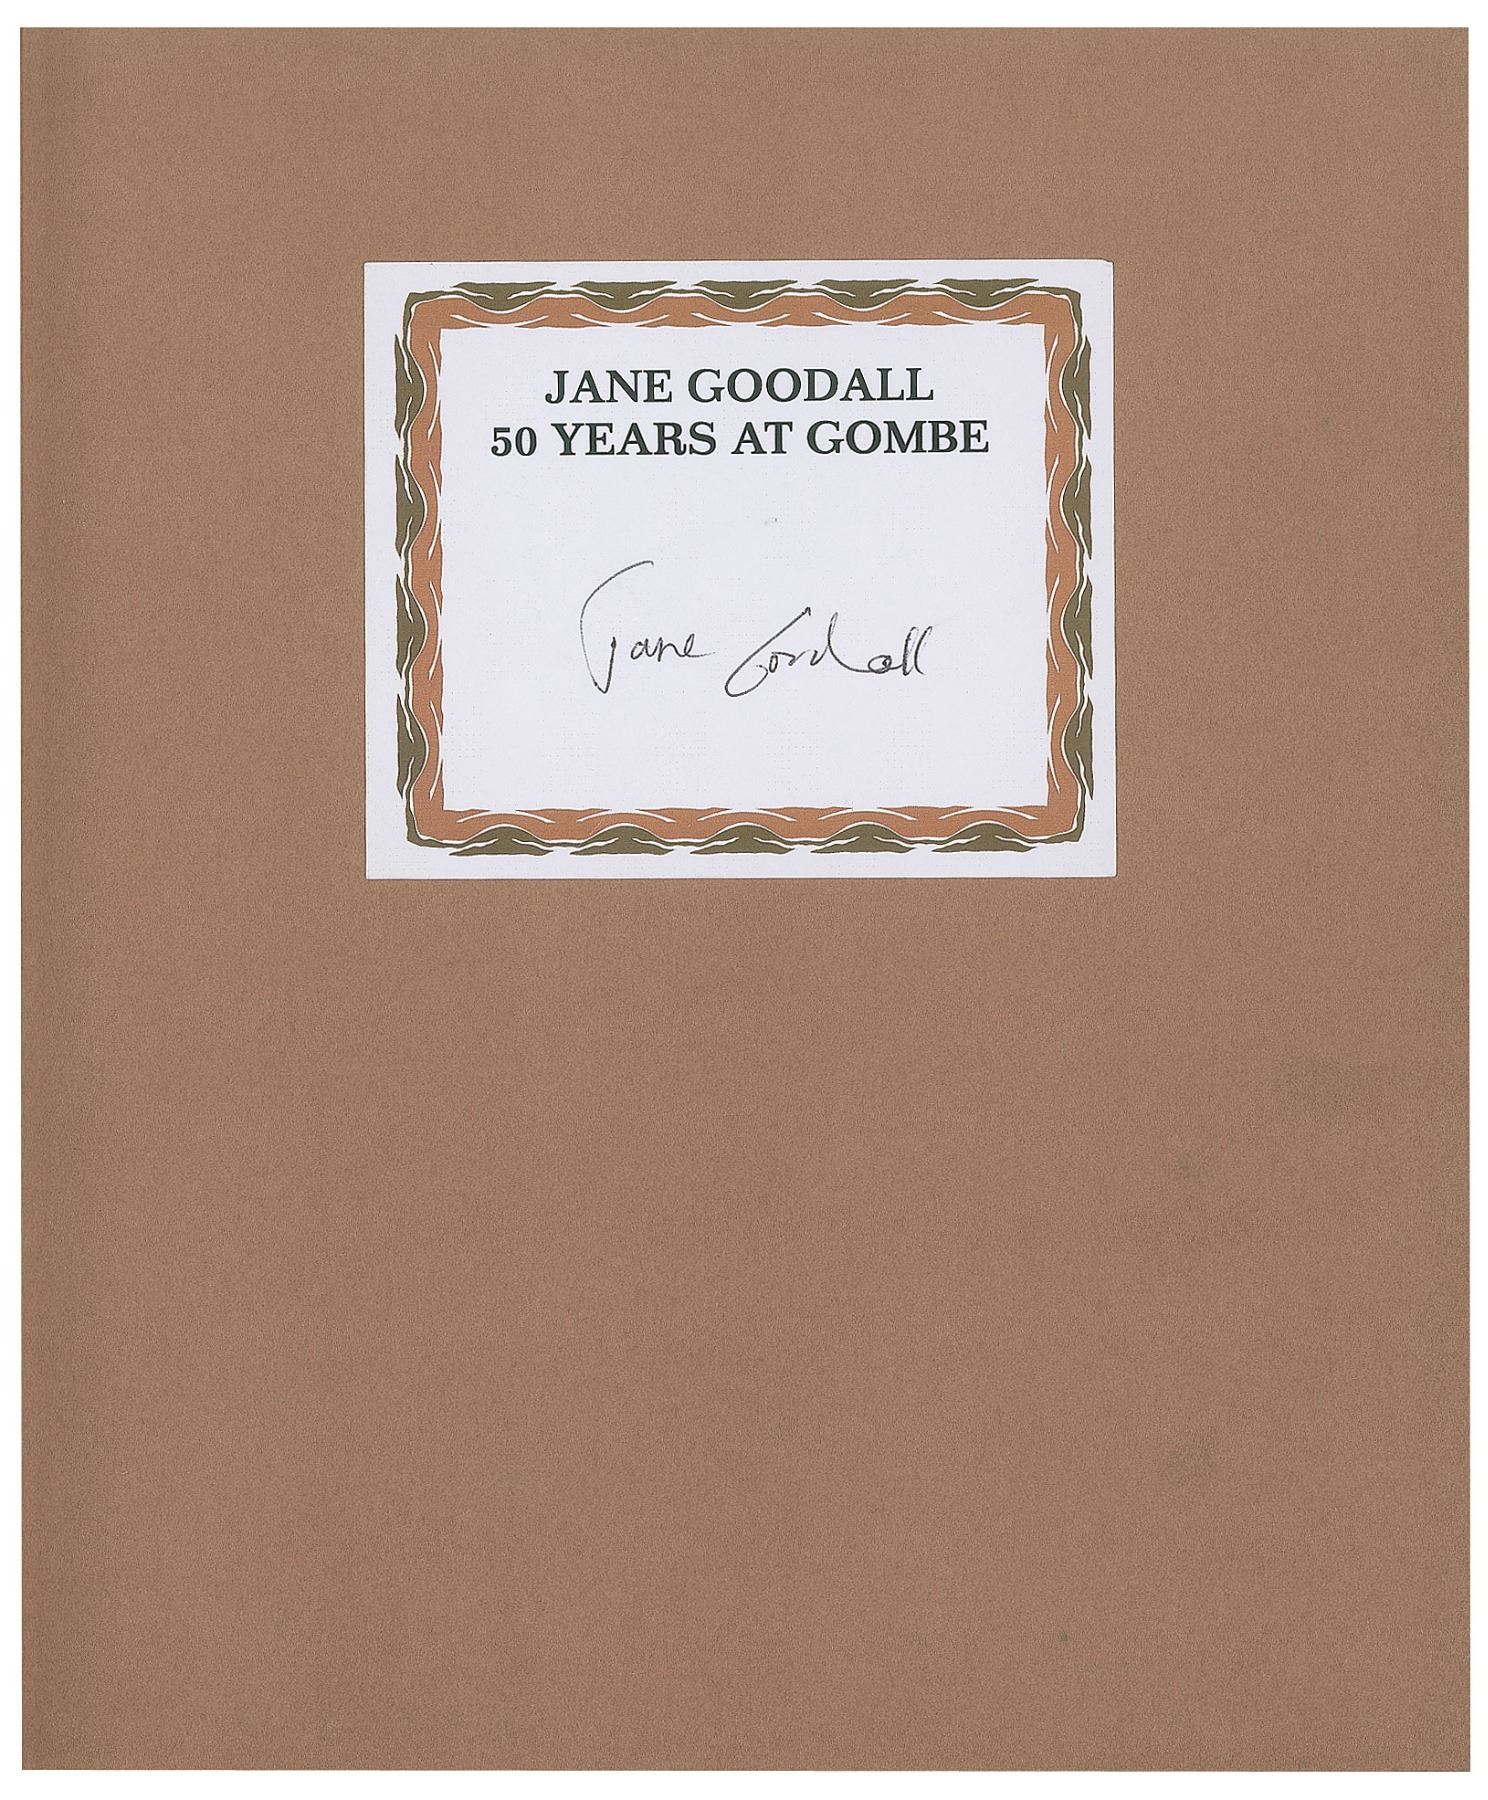 JANE GOODALL
50 YEARS AT GOMBE
Jane Goodall